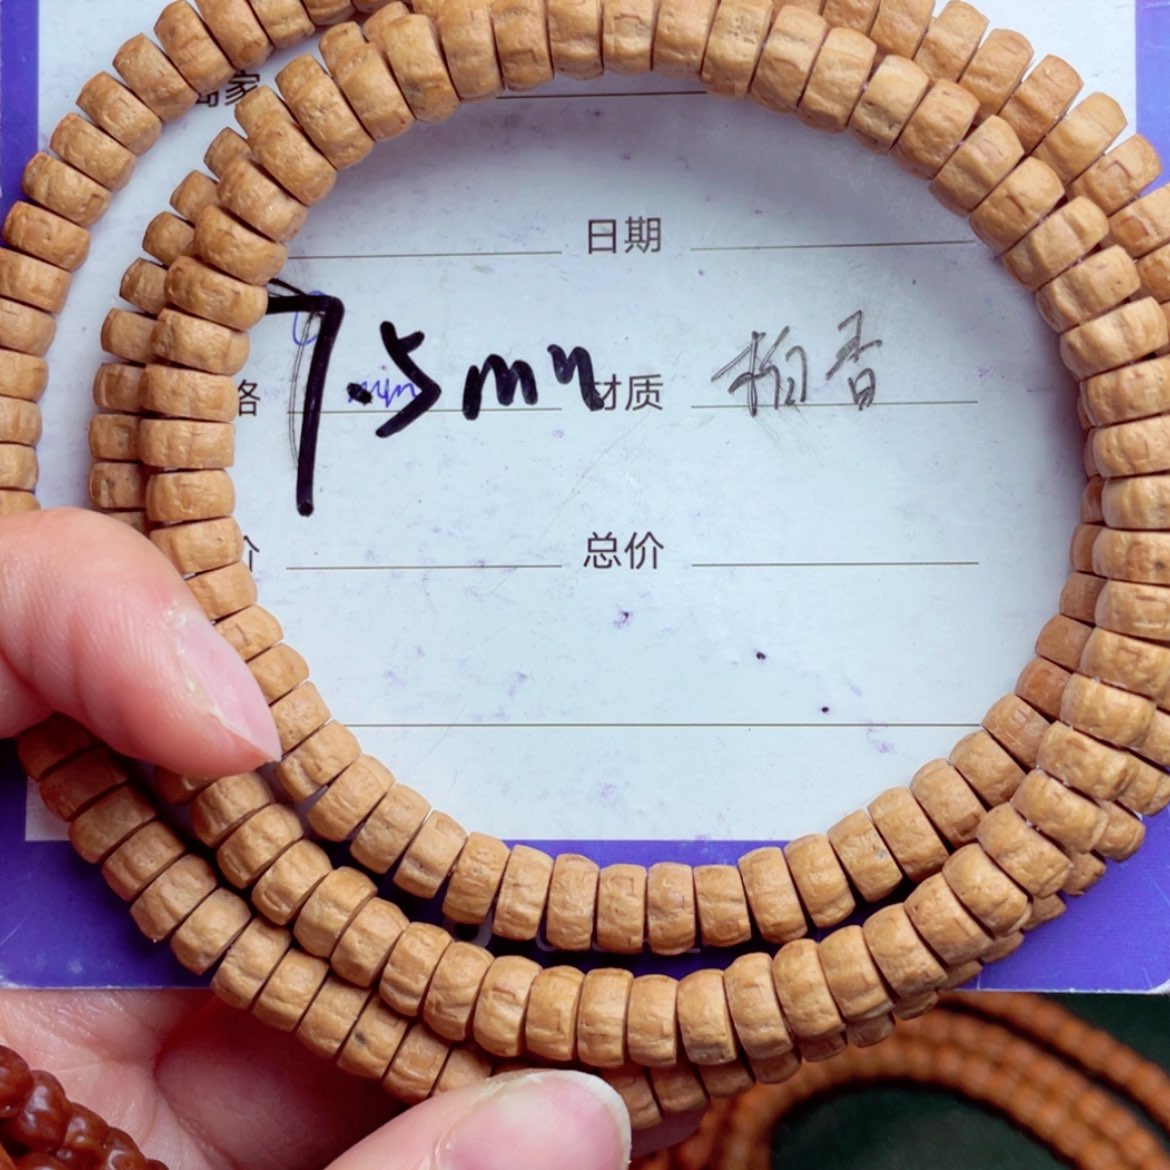 商家
日期
格 7.5mm 材质 柏香
价 总价